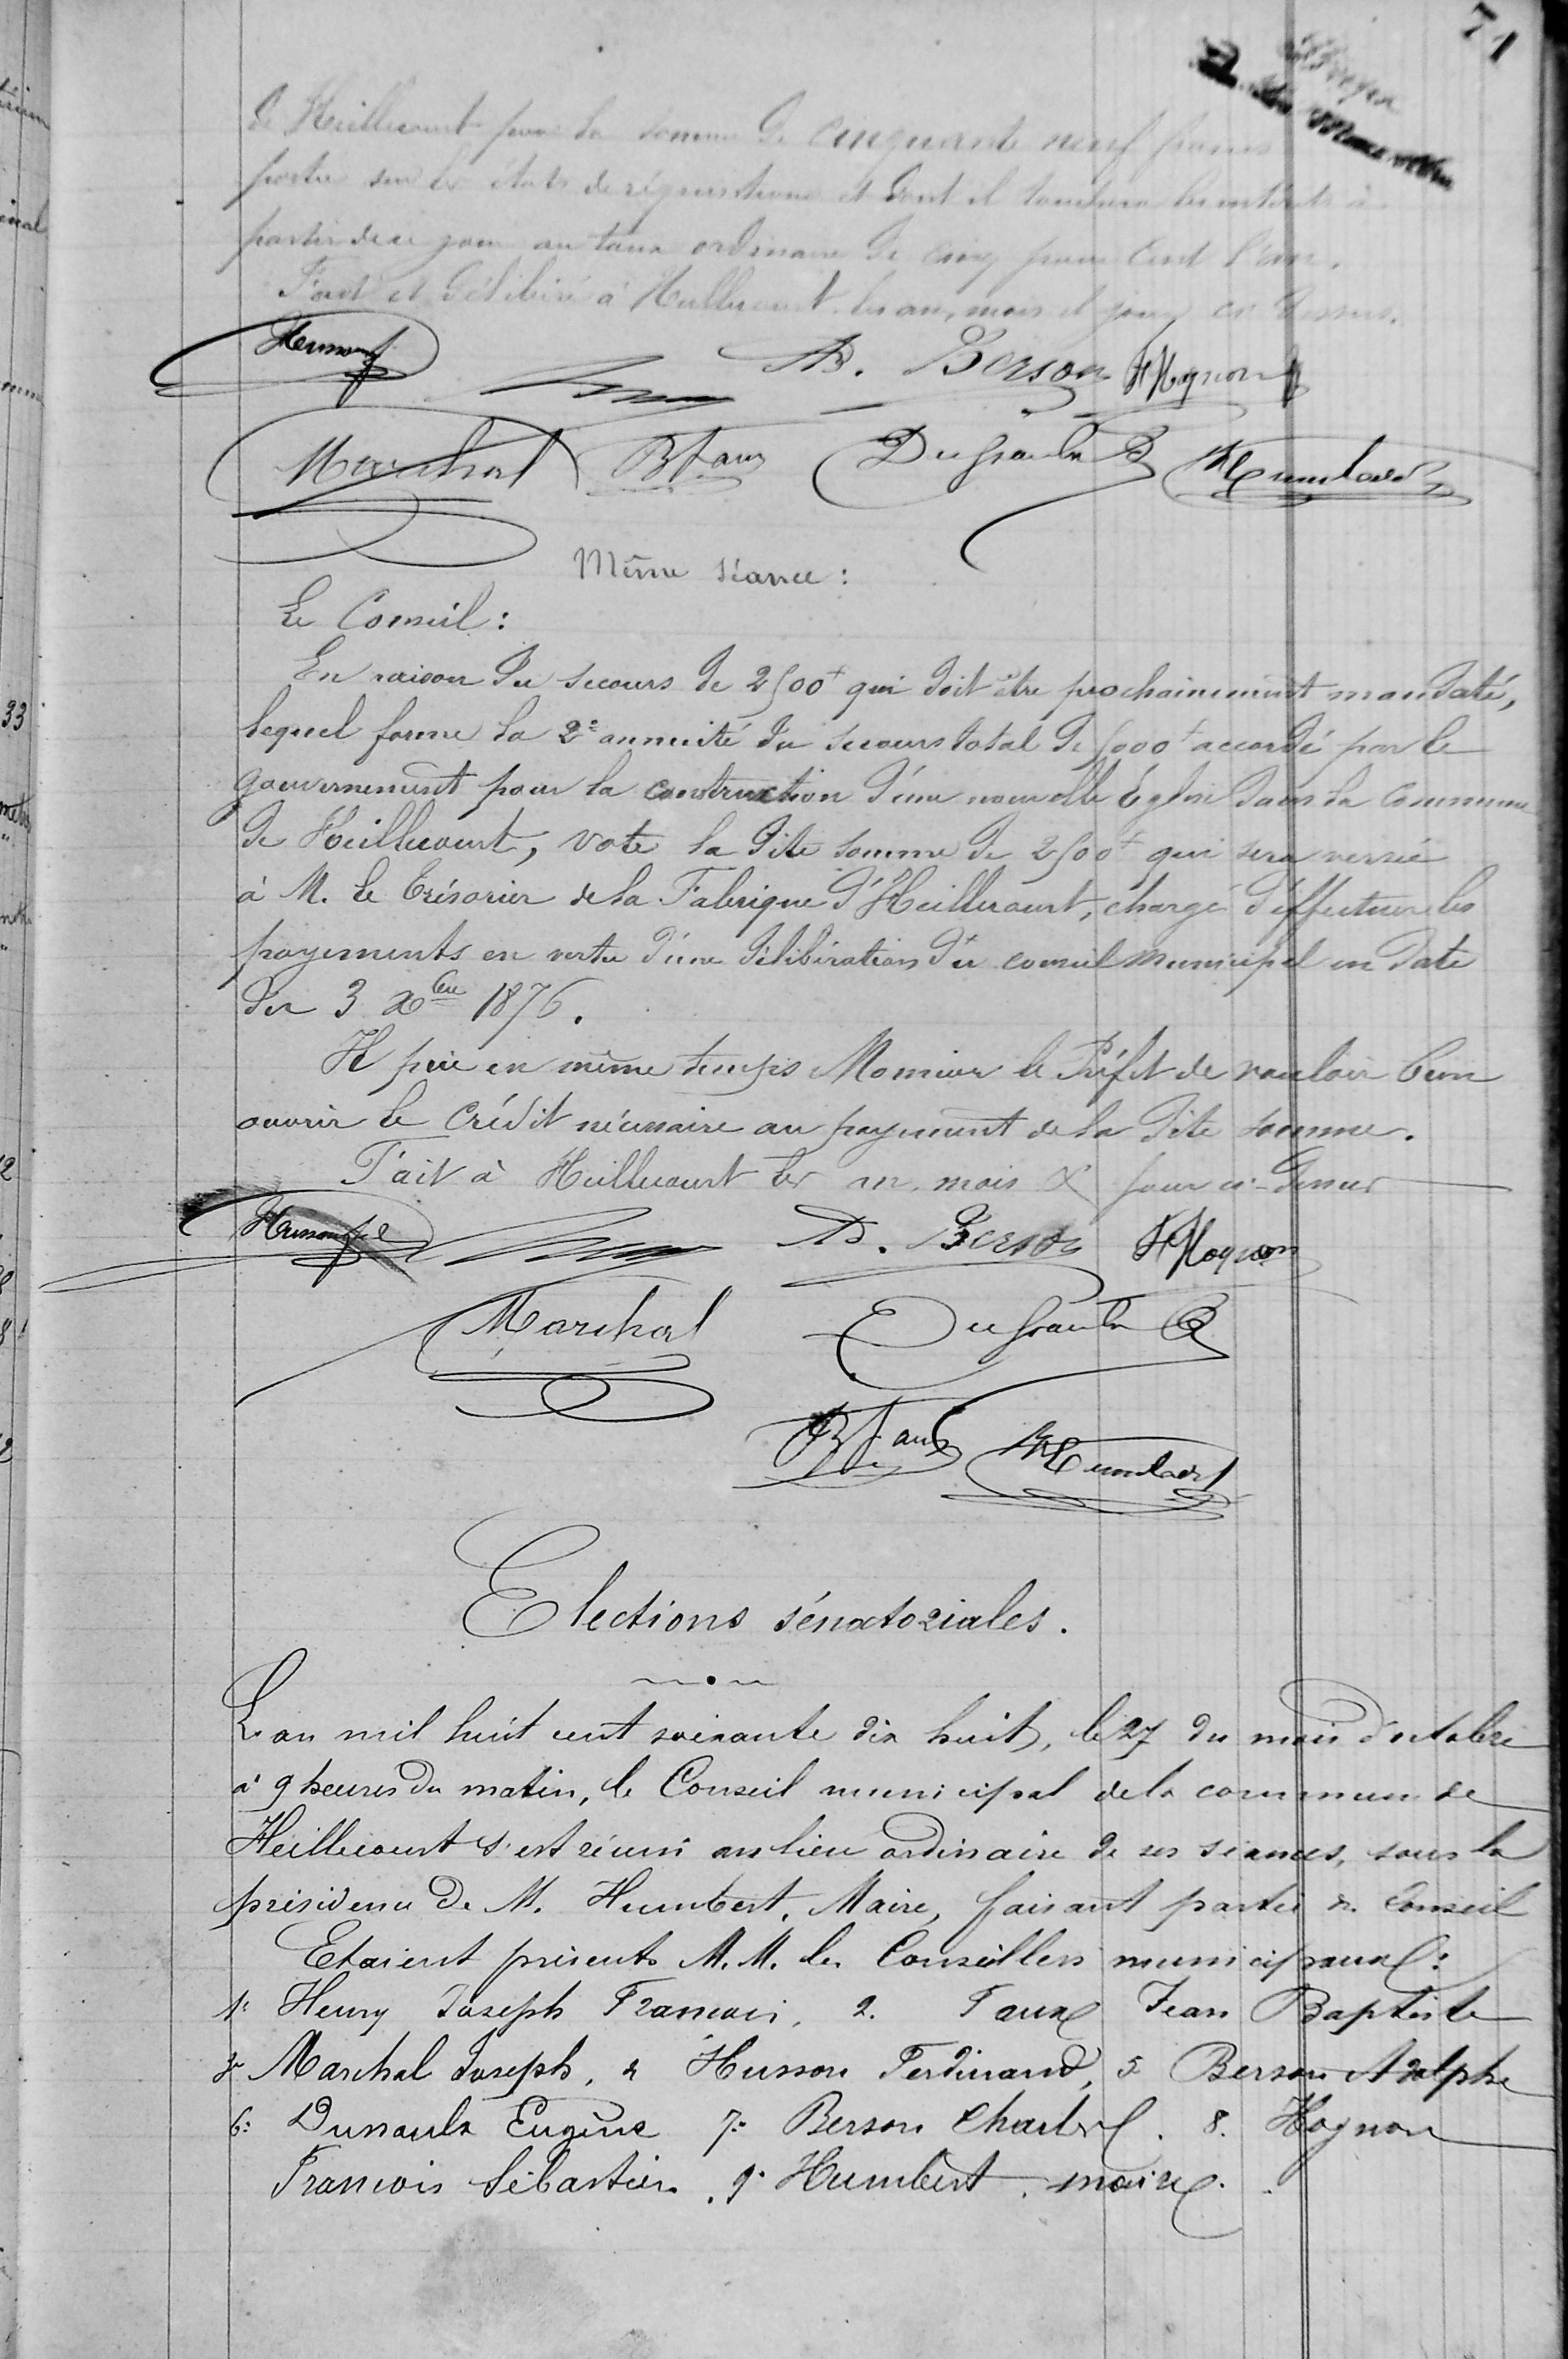 71
de Heillecourt pour la somme de cinquante neuf francs
portée sur les états de réquisitions et dont il touchera les intérêts à
partir de ce jour au taux ordinaire de cinq pour cent l'an.
Fait et délibéré à Heillecourt les an, mois et jour ci-dessus.
Husson f A. Berson F Hognon
Marchal B faux Dussaulx E Humbert
Même séance :
Le Conseil :
En raison du secours de 2500f qui doit être prochainement mandaté,
lequel forme la 2e annuité du secours total de 5000f accordé par le
gouvernement pour la construction d'une nouvelle Église dans la commune
de Heillecourt, vote la dite somme de 2500f qui sera versée
à M. le Trésorier de la Fabrique d'Heillecourt, chargé d'effectuer les
payements en vertu d'une délibération du conseil municipal en date
du 3 Xbre 1876.
Il prie en même temps Monsieur le Préfet de vouloir bien
ouvrir le crédit nécessaire au payement de la dite somme.
Fait à Heillecourt les an, mois & jour ci-dessus
Husson A. Berson F Hognon
Marchal Dussaulx E
B faux Humbert
Elections sénatoriales.
L'an mil huit cent soixante dix huit, le 27 du mois d'octobre
à 9 heures du matin, le Conseil municipal de la commune de
Heillecourt s'est réuni au lieu ordinaire de ses séances, sous la
présidence de M. Humbert, Maire, faisant partie du Conseil
Etaient présents M.M. les Conseillers municipaux :
1: Henry Joseph Francois, 2. Faux Jean Baptiste
3e Marchal Joseph, 4 Husson Ferdinand, 5 Berson Adolphe
6: Dussaulx Eugène 7: Berson Charles. 8. Hognon
Francois Sébastien. 9. Humbert, maire.